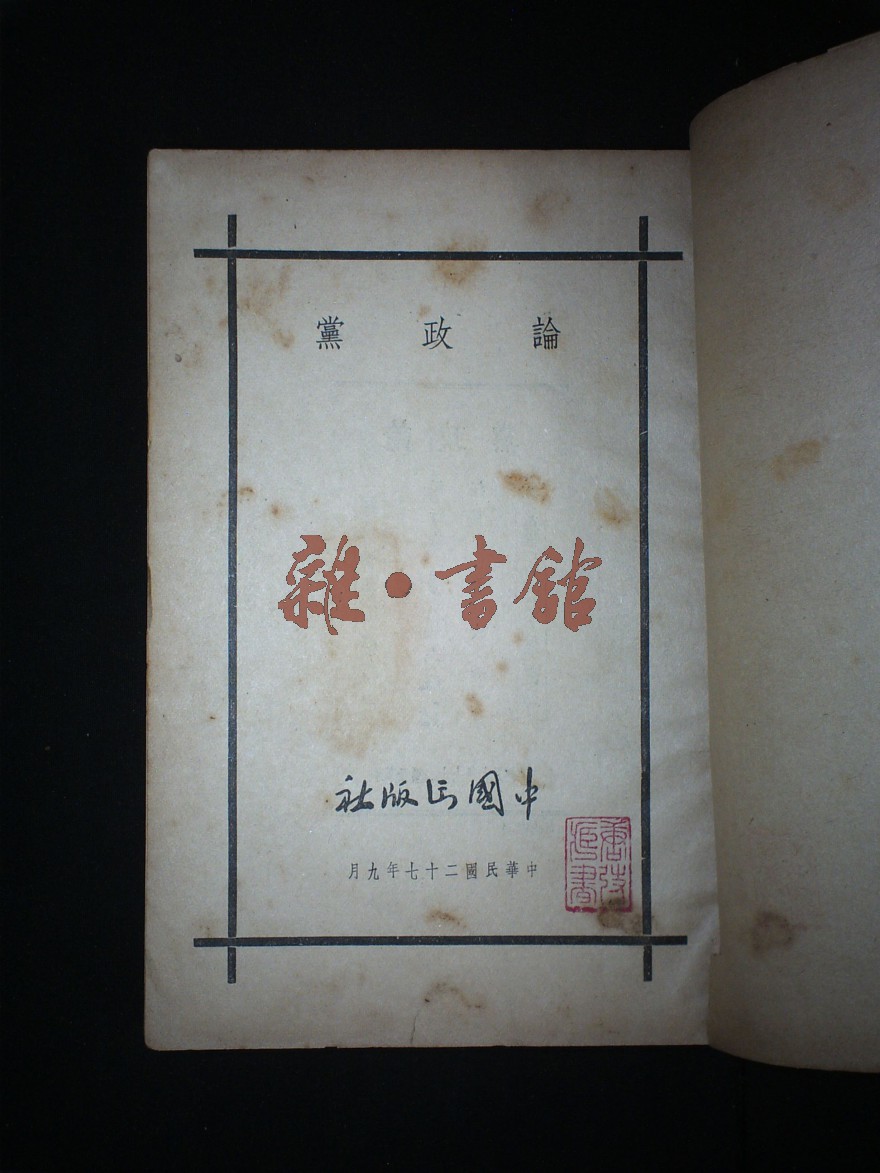 論政黨
雜•書館
中國出版社
中華民國二十七年九月
唐弢
藏書